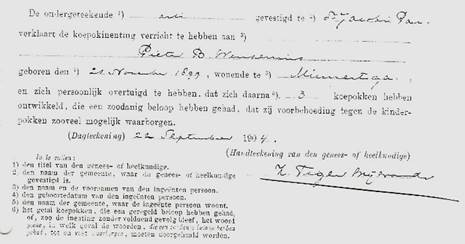 De ondergeteekende ¹) arts gevestigd te ²)
verklaart de koepokinenting verricht te hebben aan ³)
Pieter B.
geboren den ⁴) November 1899, wonende te ⁵)
en zich persoonlijk overtuigd te hebben, dat zich daarna ⁶) 3 koepokken hebben
ontwikkeld, die een zoodanig beloop hebben gehad, dat zij voorbehoeding tegen de kinder-
pokken zooveel mogelijk waarborgen.
(Dagteekening) 22 September 1904.
(Handteekening van den genees- of heelkundige)
In te vullen:
1) den titel van den genees- of heelkundige.
2) den naam der gemeente, waar de genees- of heelkundige
gevestigd is.
3) den naam en de voornamen van den ingeënten persoon.
4) den geboortedatum van den ingeënten persoon.
5) den naam der gemeente, waar de ingeënte persoon woont.
6) het getal koepokken, die een geregeld beloop hebben gehad,
of, zoo de inenting zonder voldoend gevolg bleef, het woord
geene, in welk geval de woorden, die een zoodanig beloop hebben
gehad, tot en met waarborgen, moeten doorgehaald worden.